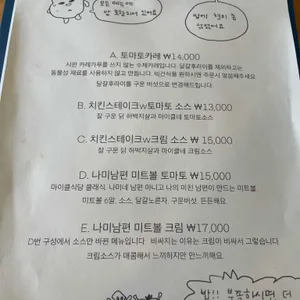 모든 메뉴에
밥 포함되어 있어요
A. 토마토카레 ₩14,000
시판 카레가루를 쓰지 않는 수제카레입니다. 달걀후라이를 제외하고는
동물성 재료를 사용하지 않고 만듭니다. 비건식을 원하시면 주문시 말씀해주세요
달걀후라이를 구운 버섯으로 변경해드립니다.
B. 치킨스테이크w토마토 소스 ₩13,000
잘 구운 닭 허벅지살과 마이클네 토마토소스
C. 치킨스테이크w크림 소스 ₩ 15,000
잘 구운 닭 허벅지살과 마이클네 크림소스
D. 나미남편 미트볼 토마토 ₩15,000
마이클식당 클래식. 나미네 남편 아니고 나의 미친 남편이 만드는 미트볼
미트볼 6알, 소스, 달걀노른자, 구운버섯. 든든해요.
E. 나미남편 미트볼 크림 ₩17,000
D번 구성에서 소스만 바뀐 메뉴입니다. 비싸지는 이유는 크림이 비싸서 그렇습니다.
크림소스가 매콤해서 느끼하지만 안느끼해요.
밥!! 부족하시면 더